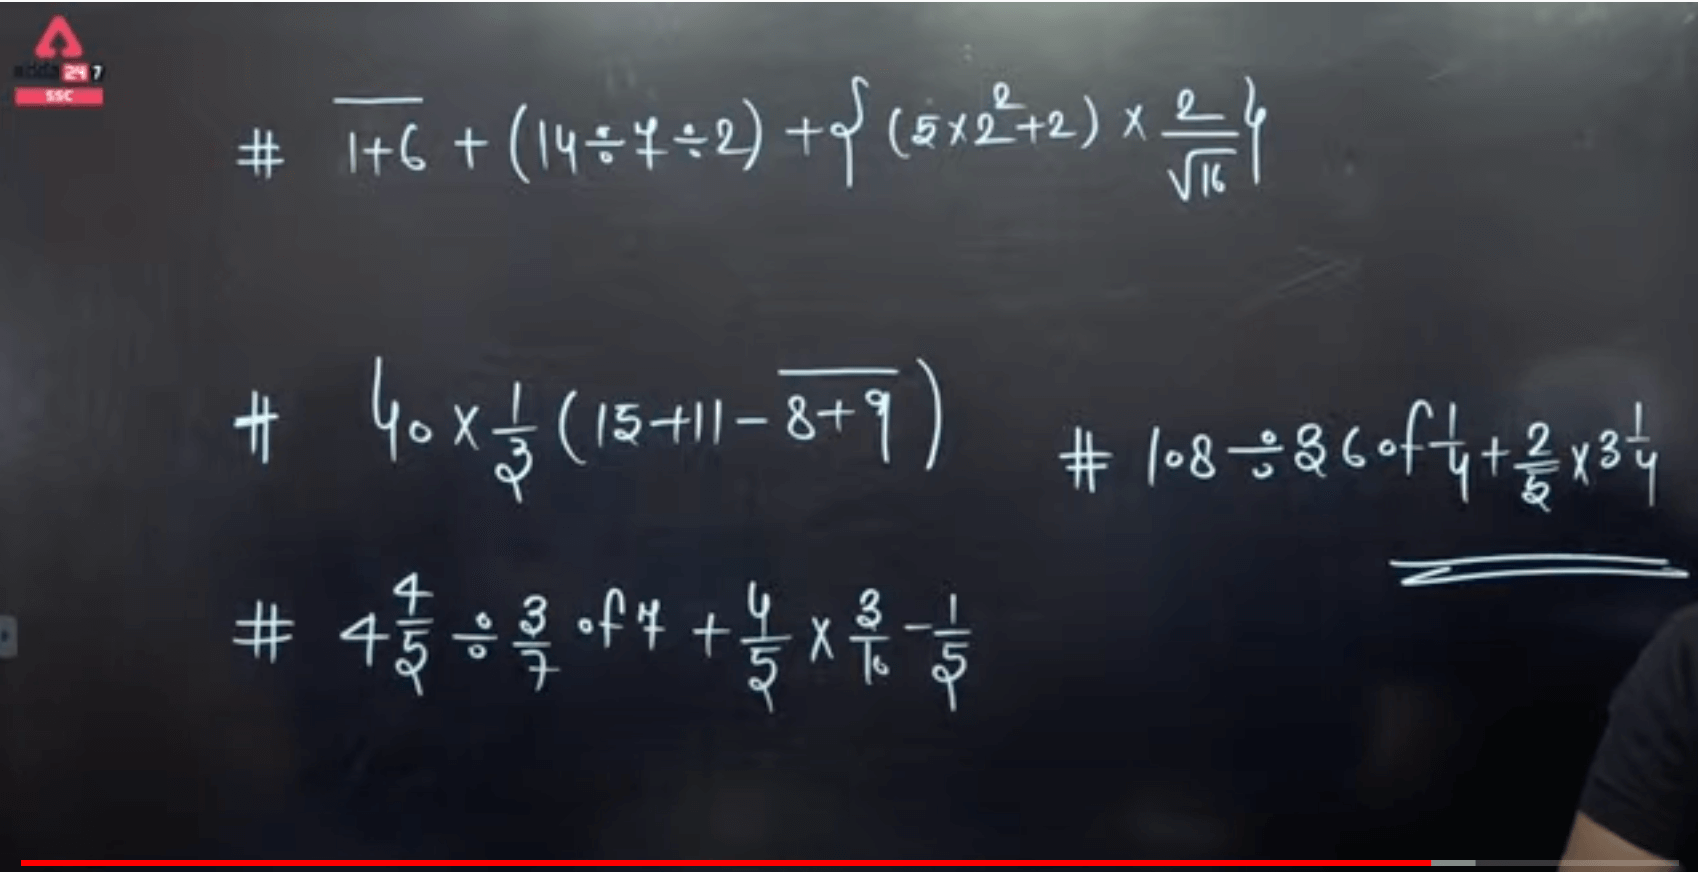 adda 24 7
SSC
# 1+6 + (14÷7÷2) + { (5×2²+2) × 2/√16 }
# 40 × 1/3 (15+11-8+9)
# 108 ÷ 36 of 1/4 + 2/5 × 3 1/4
# 4 4/5 ÷ 3/7 of 7 + 4/5 × 3/10 - 1/5